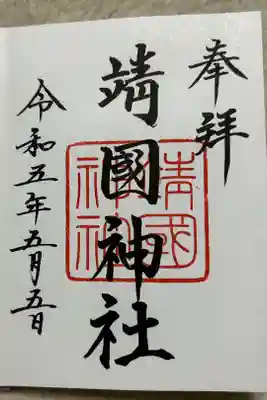 奉拝
靖國神社
靖国神社
令和五年五月五日